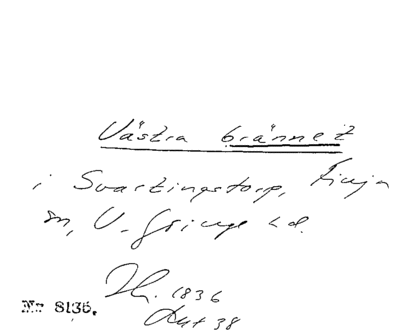 Västra brännet
i Svartingstorp, Finja
sn, V. Göinge hd.
Th. 1836
Aut 38
Nr 8136.